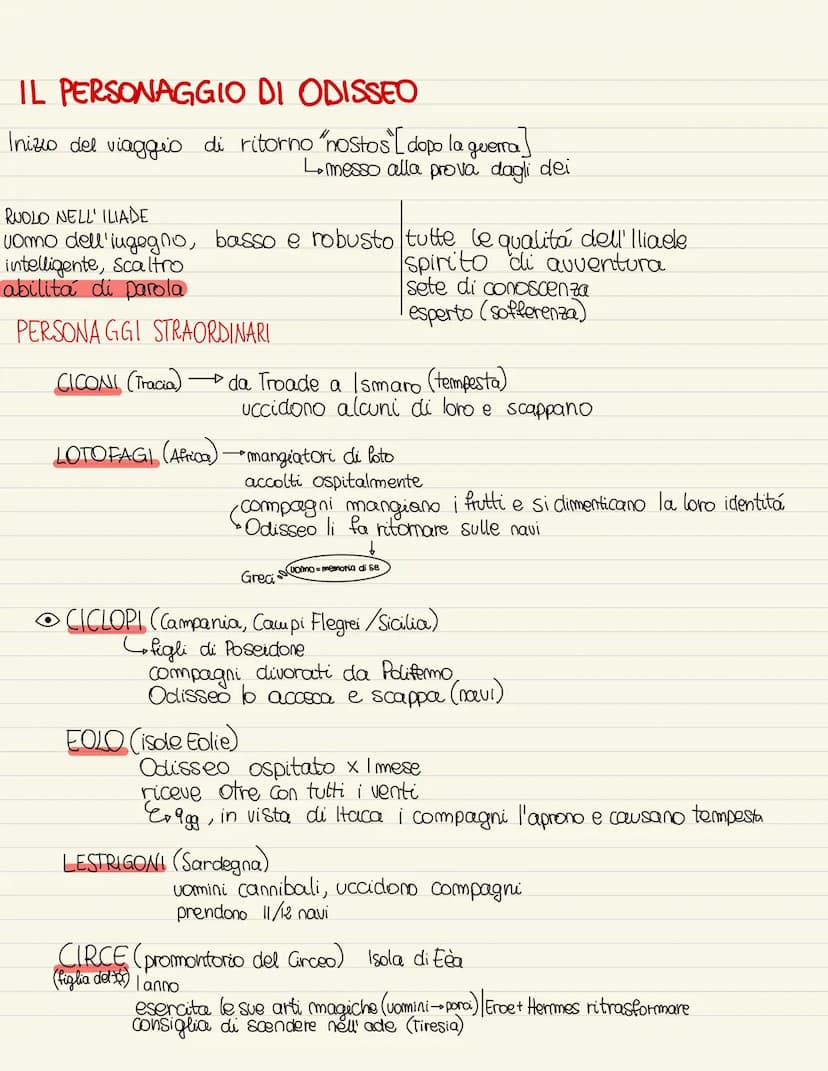 IL PERSONAGGIO DI ODISSEO
Inizio del viaggio di ritorno "nostos" [dopo la guerra]
↳messo alla prova dagli dei
RUOLO NELL'ILIADE
uomo dell'iugegno, basso e robusto
intelligente, scaltro
abilitá di parola
tutte le qualitá dell'Iliade
spirito di avventura
sete di conoscenza
esperto (sofferenza)
PERSONAGGI STRAORDINARI
CICONI (Tracia) → da Troade a Ismaro (tempesta)
uccidono alcuni di loro e scappano
LOTOFAGI (Africa) → mangiatori di loto
accolti ospitalmente
compagni mangiano i frutti e si dimenticano la loro identitá
↳Odisseo li fa ritornare sulle navi
↓
Greci uomo = memoria di se
CICLOPI (Campania, Campi Flegrei / Sicilia)
↳figli di Poseidone
compagni divorati da Polifemo
Odisseo lo acceca e scappa (navi)
EOLO (isole Eolie)
Odisseo ospitato x 1 mese
riceve otre con tutti i venti
↳ 9gg, in vista di Itaca i compagni l'aprono e causano tempesta
LESTRIGONI (Sardegna)
uomini cannibali, uccidono compagni
prendono 11/12 navi
CIRCE (promontorio del Circeo) Isola di Eèa
(figlia del ☀) 1 anno
esercita le sue arti magiche (uomini → porci) | Eroe + Hermes ritrasformare
consiglia di scendere nell'ade (Tiresia)